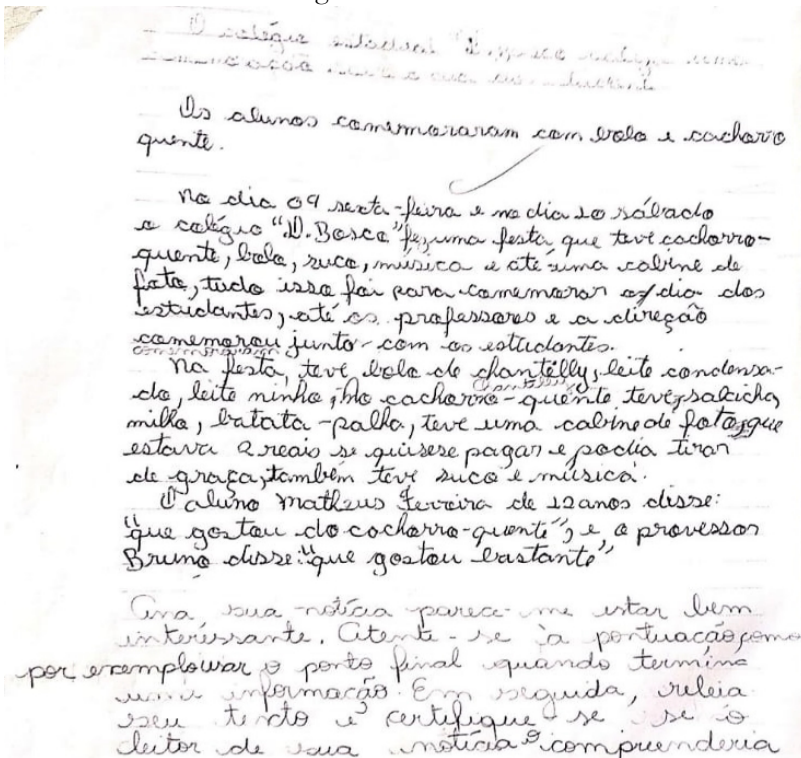 O colégio
comemoração
Os alunos comemoraram com bolo e cachorro
quente.
Na dia 09 sexta-feira e no dia 10 sábado
o colégio "D. Bosco" fez uma festa que teve cachorro-
quente, bolo, suco, música e até uma cabine de
foto, tudo isso foi para comemorar o dia dos
estudantes, até os professores e a direção
comemorou junto com os estudantes.
comemoraram
Na festa, teve bolo de chantelly, leite condensa-
chantilly
do, leite ninho, no cachorro-quente teve, salcicha,
milho, batata-palha, teve uma cabine de fotos, que
estava 2 reais se quisese pagar e podia tirar
de graça, também teve suco e música.
O aluno Matheus Ferreira de 12 anos disse:
"que gostou do cachorro-quente", e o provessor
Bruno disse: "que gostou bastante"
Ana, sua notícia parece-me estar bem
interessante. Atente-se à pontuação, como
por exemplo usar o ponto final quando termina
uma informação. Em seguida, releia
seu texto e certifique-se se o
leitor de sua notícia o compreenderia